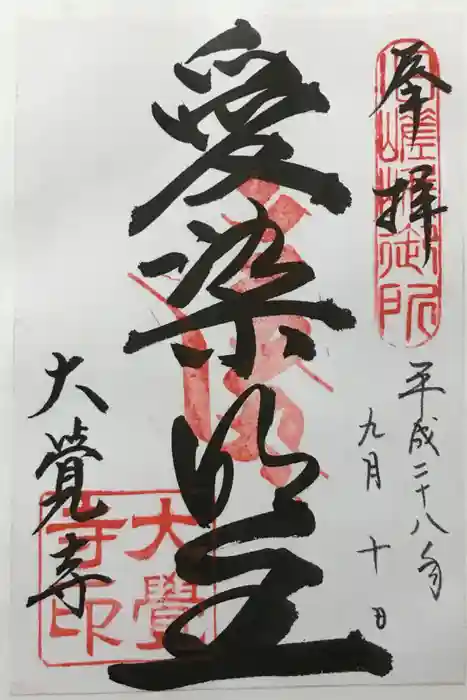 奉拝
舊嵯峨御所
平成二十八年
九月十日
愛染明王
大覺寺
大覺寺印